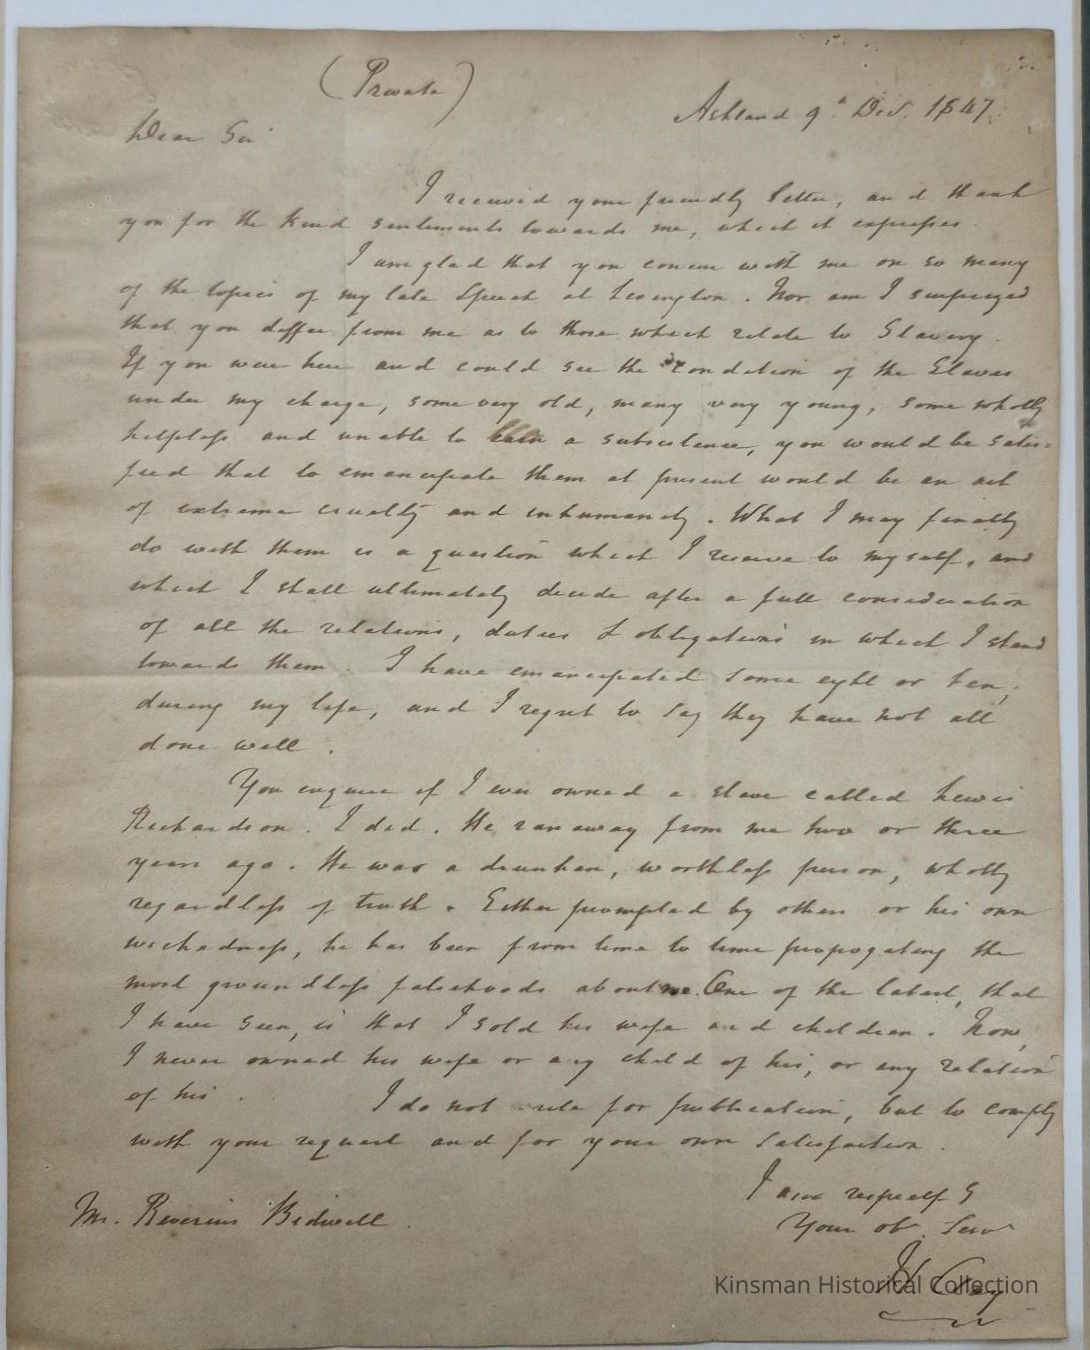 (Private)
Ashland 9th Dec. 1847.
Dear Sir
I received your friendly letter, and thank
you for the kind sentiments towards me, which it expresses.
I am glad that you concur with me on so many
of the topics of my late Speech at Lexington. Nor am I surprized
that you differ from me as to those which relate to Slavery.
If you were here and could see the condition of the Slaves
under my charge, some very old, many very young, some wholly
helpless and unable to earn a subsistence, you would be satis=
fied that to emancipate them at present would be an act
of extreme cruelty and inhumanity. What I may finally
do with them is a question which I reserve to myself, and
which I shall ultimately decide after a full consideration
of all the relations, duties & obligations in which I stand
towards them. I have emancipated some eight or ten,
during my life, and I regret to say they have not all
done well.
You enquire if I ever owned a slave called Lewis
Richardson. I did. He ran away from me two or three
years ago. He was a drunken, worthless person, wholly
regardless of truth. Either prompted by others or his own
wickedness, he has been from time to time propogating the
most groundless falsehoods about me. One of the latest, that
I have seen, is that I sold his wife and children. Now,
I never owned his wife or any child of his, or any relation
of his. I do not write for publication, but to comply
with your request and for your own satisfaction.
I am respectfy
Your ob. Serv
Mr. Bidwell.
H. Clay
Kinsman Historical Collection